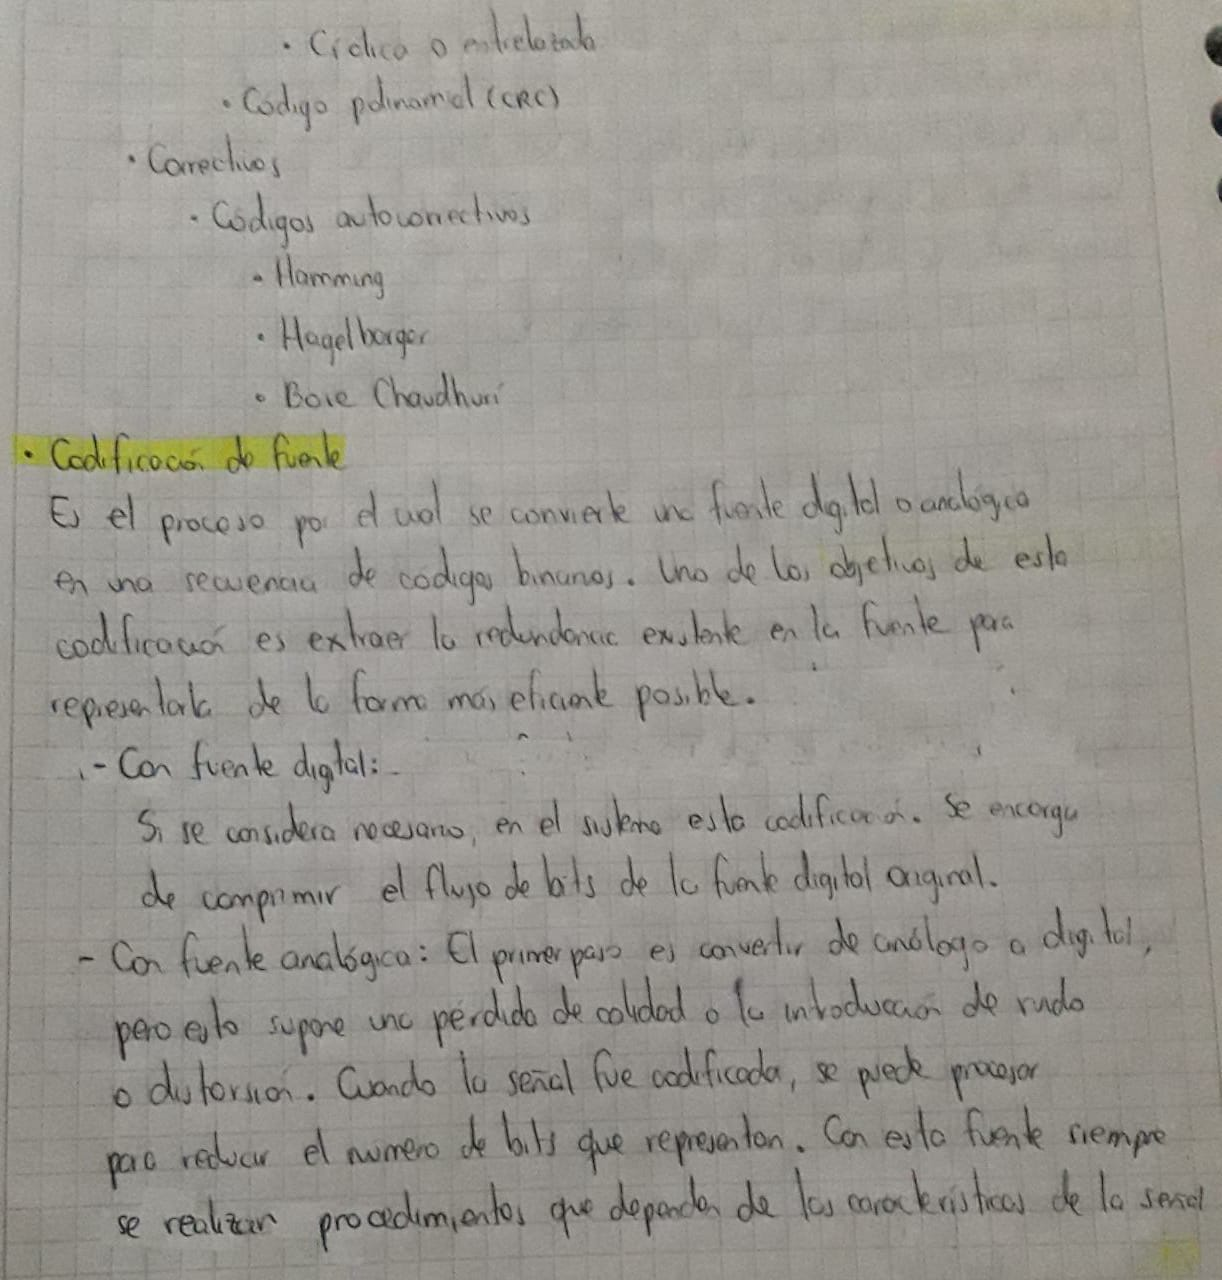 · Cíclica o entrelazada
· Código polinomial (CRC)
· Correctivos
· Códigos autocorrectivos
· Hamming
· Hagelbarger
· Bose Chaudhuri
· Codificación de fuente
Es el proceso por el cual se convierte una fuente digital o analógica
en una secuencia de códigos binarios. Uno de los objetivos de esta
codificación es extraer la redundancia existente en la fuente para
representarla de la forma más eficiente posible.
- Con fuente digital:
Si se considera necesario, en el sistema esta codificación. Se encarga
de comprimir el flujo de bits de la fuente digital original.
- Con fuente analógica: El primer paso es convertir de análogo a digital,
pero esto supone una pérdida de calidad o la introducción de ruido
o distorsión. Cuando la señal fue codificada, se puede procesar
para reducir el número de bits que representan. Con esta fuente siempre
se realizan procedimientos que dependen de las características de la señal